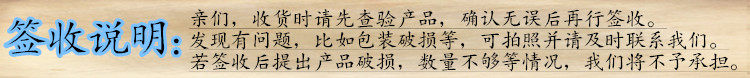 签收说明：
亲们，收货时请先查验产品，确认无误后再行签收。
发现有问题，比如包装破损等，可拍照并请及时联系我们。
若签收后提出产品破损，数量不够等情况，我们将不予承担。